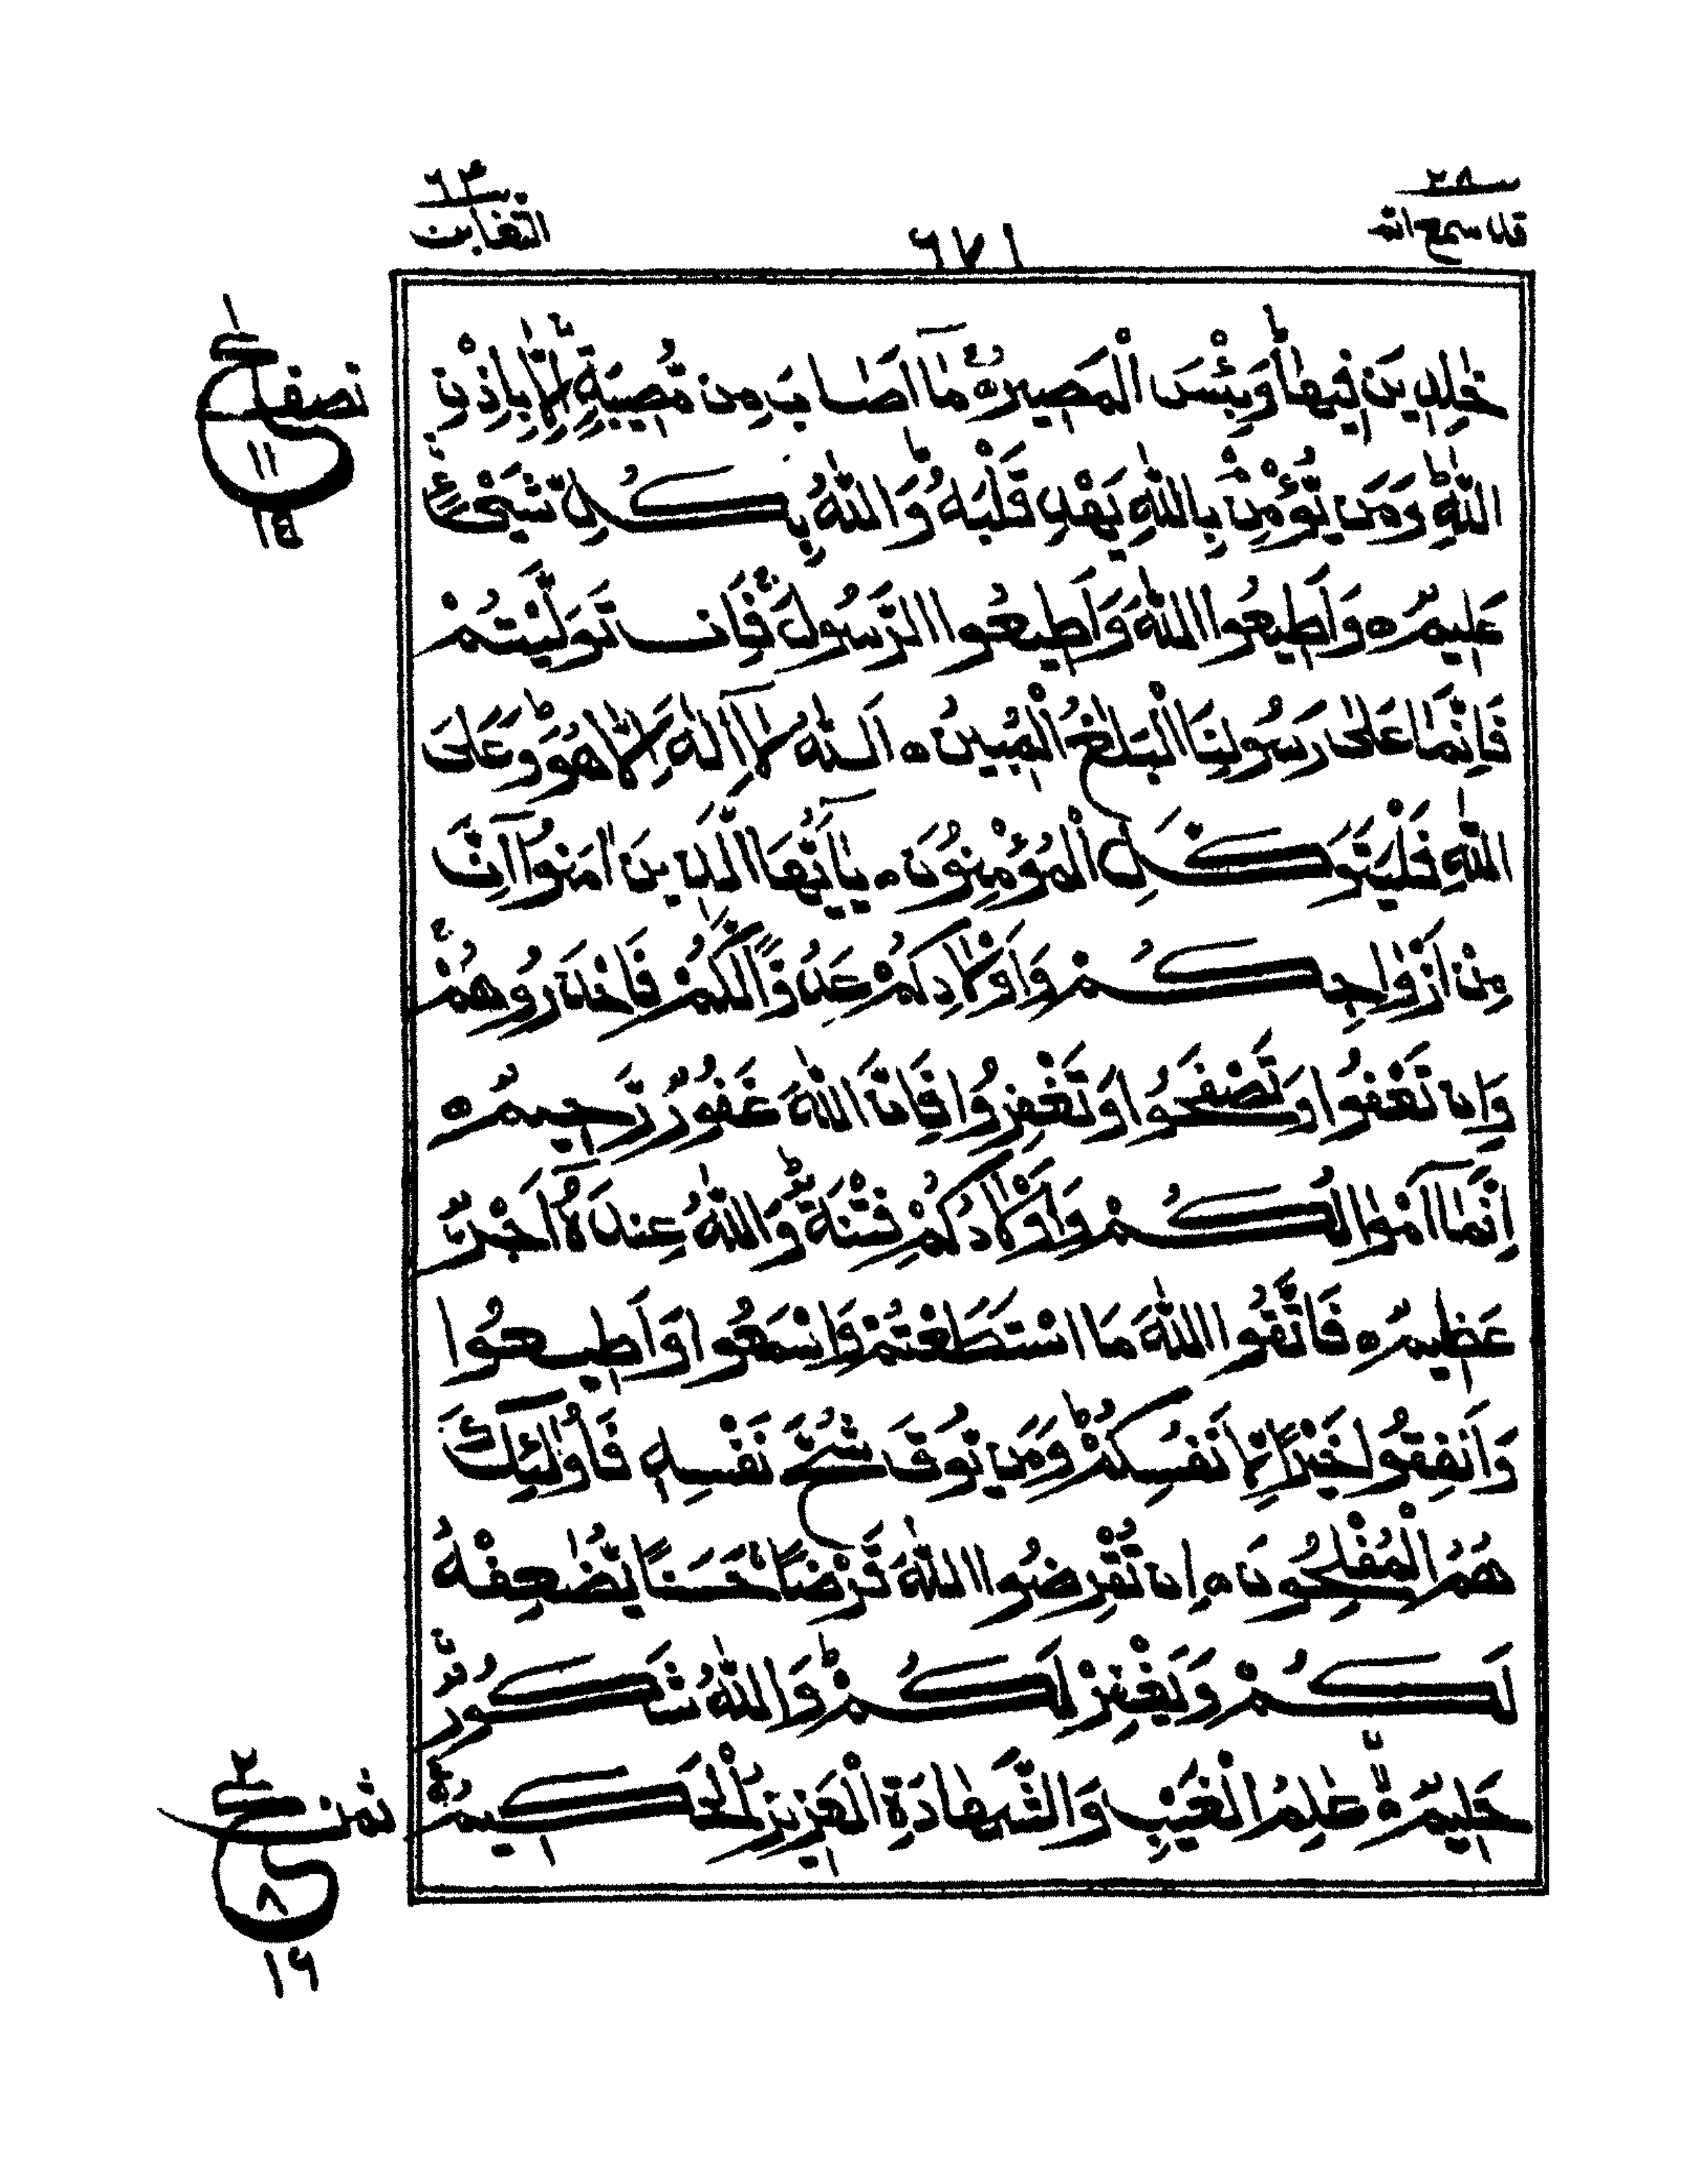 ٢٨
قد سمع الله
٦٧١
٦٤
التغابن
خٰلِدِيْنَ فِيْهَا ؕ وَبِئْسَ الْمَصِيْرُ ۝ مَاۤ اَصَابَ مِنْ مُّصِيْبَةٍ اِلَّا بِاِذْنِ
اللّٰهِ ؕ وَمَنْ يُّؤْمِنْۢ بِاللّٰهِ يَهْدِ قَلْبَهٗ ؕ وَاللّٰهُ بِكُلِّ شَيْءٍ
عَلِيْمٌ ۝ وَاَطِيْعُوا اللّٰهَ وَاَطِيْعُوا الرَّسُوْلَ ۚ فَاِنْ تَوَلَّيْتُمْ
فَاِنَّمَا عَلٰى رَسُوْلِنَا الْبَلٰغُ الْمُبِيْنُ ۝ اَللّٰهُ لَاۤ اِلٰهَ اِلَّا هُوَ ؕ وَعَلَى
اللّٰهِ فَلْيَتَوَكَّلِ الْمُؤْمِنُوْنَ ۝ يٰۤاَيُّهَا الَّذِيْنَ اٰمَنُوْۤا اِنَّ
مِنْ اَزْوَاجِكُمْ وَاَوْلَادِكُمْ عَدُوًّا لَّكُمْ فَاحْذَرُوْهُمْ ۚ
وَاِنْ تَعْفُوْا وَتَصْفَحُوْا وَتَغْفِرُوْا فَاِنَّ اللّٰهَ غَفُوْرٌ رَّحِيْمٌ ۝
اِنَّمَاۤ اَمْوَالُكُمْ وَاَوْلَادُكُمْ فِتْنَةٌ ؕ وَاللّٰهُ عِنْدَهٗۤ اَجْرٌ
عَظِيْمٌ ۝ فَاتَّقُوا اللّٰهَ مَا اسْتَطَعْتُمْ وَاسْمَعُوْا وَاَطِيْعُوْا
وَاَنْفِقُوْا خَيْرًا لِّاَنْفُسِكُمْ ؕ وَمَنْ يُّوْقَ شُحَّ نَفْسِهٖ فَاُولٰٓئِكَ
هُمُ الْمُفْلِحُوْنَ ۝ اِنْ تُقْرِضُوا اللّٰهَ قَرْضًا حَسَنًا يُّضٰعِفْهُ
لَكُمْ وَيَغْفِرْ لَكُمْ ؕ وَاللّٰهُ شَكُوْرٌ
حَلِيْمٌ ۝ عٰلِمُ الْغَيْبِ وَالشَّهَادَةِ الْعَزِيْزُ الْحَكِيْمُ ۝
نصف
١
ع
١١
١٥
ثمن
٢
ع
٨
١٦